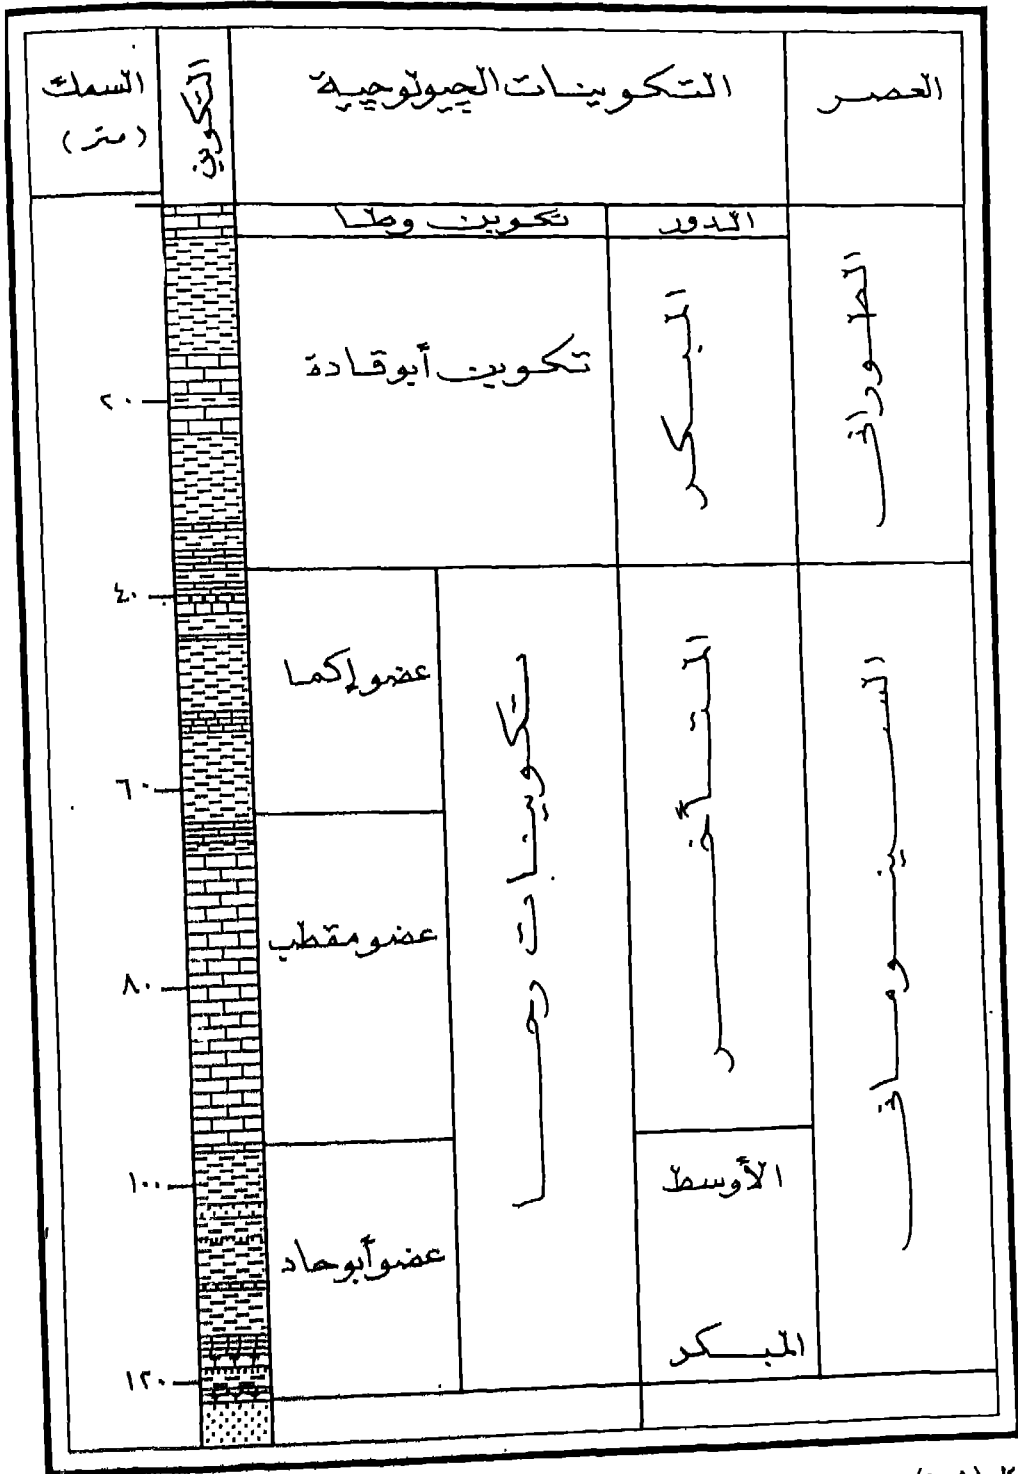 العصر
التكوينات الجيولوجية
التكوين
السمك
(متر)
الدور
تكوين وطا
الطوراني
المبكر
تكوين أبوقادة
٢٠
٤٠
السينوماني
المتأخر
تكوينات رحا
عضو إكما
٦٠
عضو مقطب
٨٠
الأوسط
١٠٠
عضو أبوحاد
المبكر
١٢٠